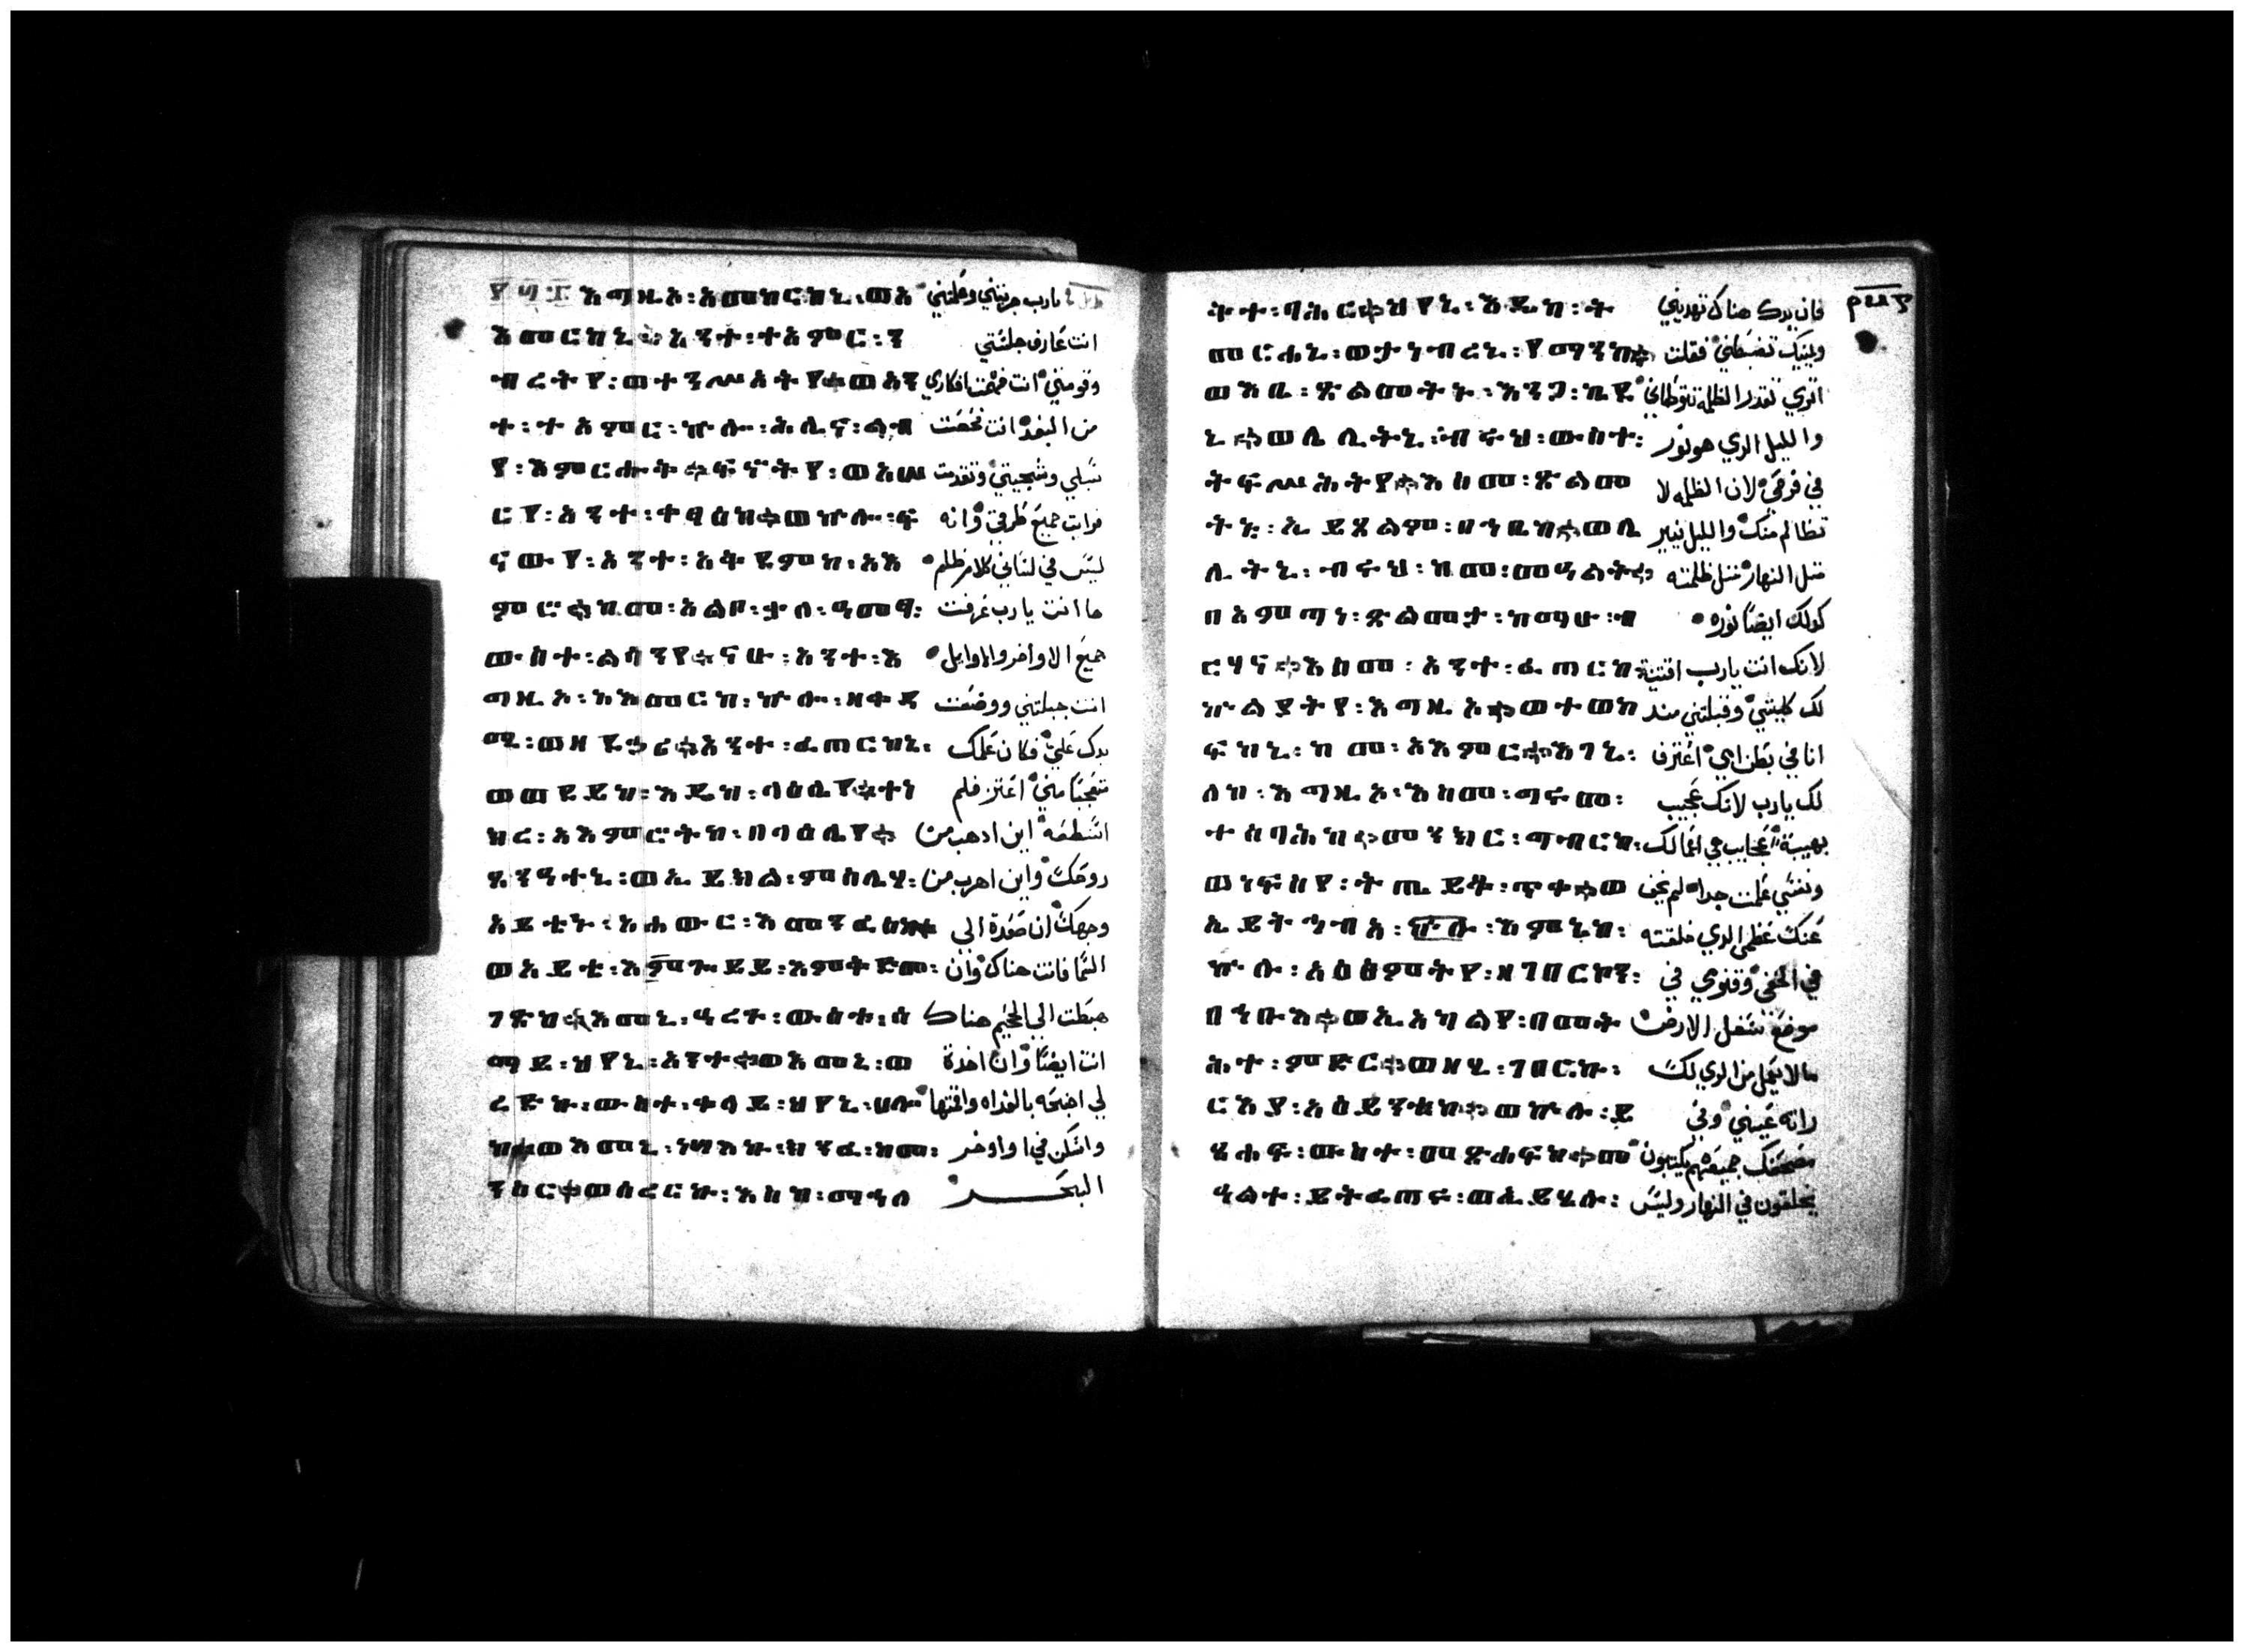 ፻፴፰ እግዚኦ፡አመከርከኒ፡ወአ يارب جربتني وعلمتني
እመርከኒ፨አንተ፡ተአምር፡ን انت عارف جلستي
ብረትየ፡ወተንሥኦትየ፨ወአን وقومتي انت فهمت افكاري
ተ፡ተአምር፡ኵሎ፡ሕሊና፡ልብ من البعد انت فحصت
የ፡እምርሑት፨ፍኖትየ፡ወአሠ سبلي وسجيتي وتقدمت
ርየ፡አንተ፡ተዓፀከ፨ወኵሎ፡ፍ فرايت جميع طرقي وانه
ናውየ፡አንተ፡አቅደምከ፡አእ ليس في لساني كلام ظلم
ምሮ፨ከመ፡አልቦ፡ቃለ፡ዓመፃ፡ ها انت يا رب عرفت
ውስተ፡ልሳንየ፨ናሁ፡አንተ፡እ جميع الاواخر والاوايل
ግዚኦ፡አእመርከ፡ኵሎ፡ዘቀዳ انت جبلتني ووضعت
ሚ፡ወዘደኃሪ፨አንተ፡ፈጠርከኒ፡ يدك علي فكان علمك
ወወደይከ፡እዴከ፡ላዕሌየ፨ተነ متعجبا مني اعتز فلم
ክረ፡አእምሮትከ፡በላዕሌየ፨ استطعه اين ادهب من
ጸንዓተኒ፡ወኢይክል፡ምስሌሃ፡ روحك واين اهرب من
አይቴኑ፡አሐውር፡እመንፈስከ፨ وجهك ان صعدة الي
ወአይቴ፡እጐይይ፡እምቅድመ፡ السما فانت هناك وان
ገጽከ፨እመኒ፡ዓረጉ፡ውስተ፡ሰ هبطت الي الجحيم هناك
ማይ፡ህየኒ፡አንተ፨ወእመኒ፡ወ انت ايضا وان اخدة
ረድኩ፡ውስተ፡ቀላይ፡ህየኒ፡ሀሎ لي اجنحه بالغداه واقمتها
ከ፨ወእመኒ፡ነሣእኩ፡ክንፈ፡ከመ፡ واسكن في اواخر
ንስር፨ወሰረርኩ፡እስከ፡ማኅለ البحر
ቅተ፡ባሕር፨ህየኒ፡እዴከ፡ት فان يدك هناك تهديني
መርሐኒ፡ወታነብረኒ፡የማንከ፨ ويمينك تضبطني فقلت
ወእቤ፡ጽልመትኑ፡እንጋ፡ኬደ اتري تقدر الظلمه تتوطاني
ኒ፨ወሌሊትኒ፡ብሩህ፡ውስተ፡ والليل الدي هو نور
ትፍሥሕትየ፨እስመ፡ጽልመ في فرحي لان الظلمه لا
ትኒ፡ኢይጸልም፡ በኀቤከ፨ወሌ تظالم منك والليل نيير
ሊትኒ፡ብሩህ፡ከመ፡መዓልት፨ متل النهار متل ظلمته
በአምጣነ፡ጽልመታ፡ከማሁ፡ብ كدلك ايضا نوره
ርሃና፨እስመ፡አንተ፡ፈጠርከ፡ لانك انت يارب اقتنية
ኵልያትየ፡እግዚኦ፨ወተወከ لك كليتي وقبلتني مند
ፍከኒ፡ከመ፡እእምር፨እገኒ፡ انا في بطن امي اعترف
ለከ፡እግዚኦ፡እስመ፡ግሩም፡ لك يارب لانك عجيب
ተሰባሕከ፨መንክር፡ግብርከ፡ بهيبة عجايب هي اعمالك
ወነፍስየ፡ትጤይቅ፡ጥቀ፨ወ ونفسي علمت جدا لم يخف
ኢይትኀብእ፡ኵሉ፡እምኔከ፡ عنك عظمي الدي خلقته
ኵሉ፡አዕፅምትየ፡ዘገበርከ፡ في الخفي وقنومي في
በኅቡእ፨ወኢአካልየ፡በመት موضع سفل الارض
ሕተ፡ምድር፨ወዘሂ፡ገበርኩ፡ مالا يعمل من الدي لك
ርእያ፡አዕይንቲከ፨ወኵሉ፡ይ راته عيني وفي
ጸሐፍ፡ውስተ፡መጽሐፍከ፨መ مصحفك جميعهم يكتبون
ዓልተ፡ይትፈጠሩ፡ወኢይሄሉ፡ يخلقون في النهار وليس